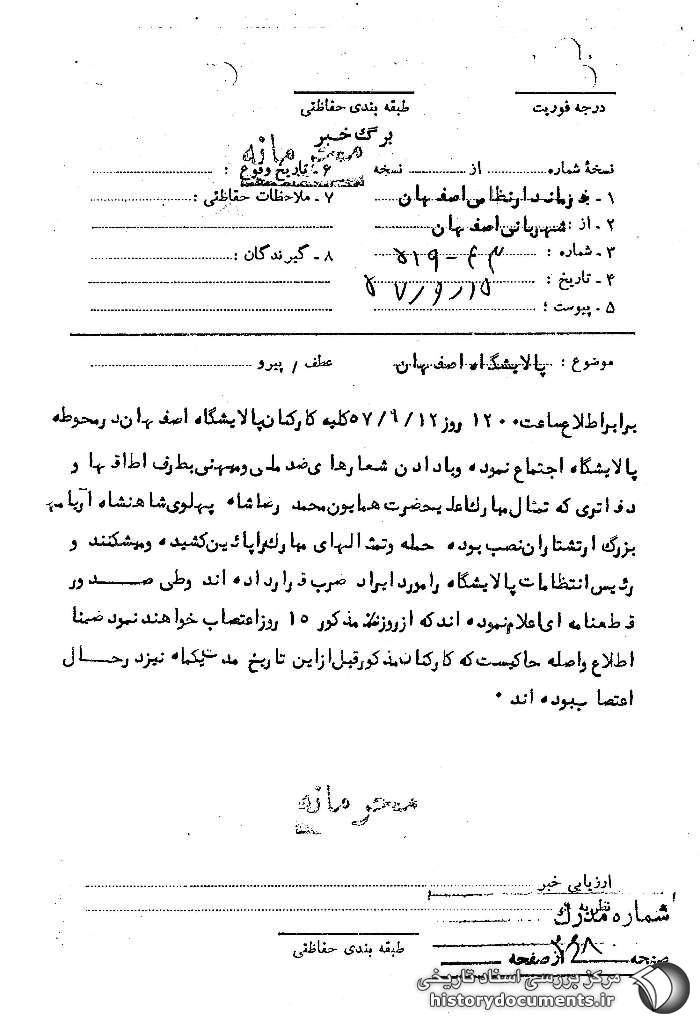 درجه فوریت
طبقه بندی حفاظتی
برگ خبر
محرمانه
نسخهٔ شماره از نسخه
۶ ـ تاریخ وقوع :
۱ ـ به فرماندار نظامی اصفهان
۷ ـ ملاحظات حفاظتی :
۲ ـ از : شهربانی اصفهان
۳ ـ شماره :
۸ ـ گیرندگان :
۴ ـ تاریخ : ۵۷/۶/۱۵
۵ ـ پیوست :
موضوع : پالایشگاه اصفهان
عطف / پیرو
برابر اطلاع ساعت ۱۲۰۰ روز ۵۷/۶/۱۲ کلیه کارکنان پالایشگاه اصفهان در محوطه
پالایشگاه اجتماع نموده و با دادن شعارهای ضد ملی و میهنی بطرف اطاقها و
دفاتری که تمثال مبارک اعلیحضرت همایون محمد رضا شاه پهلوی شاهنشاه آریامهر
بزرگ ارتشتاران نصب بوده حمله و تمثالهای مبارک را پائین کشیده و میشکنند و
رئیس انتظامات پالایشگاه را مورد ایراد ضرب قرار داده اند وطی صدور
قطعنامه ای اعلام نموده اند که از روز مذکور ۱۵ روز اعتصاب خواهند نمود ضمنا
اطلاع واصله حاکیست که کارکنان مذکور قبل از این تاریخ مدت یکماه نیز در حال
اعتصاب بوده اند ۰
محرمانه
ارزیابی خبر
نظریه
شماره مدرک
طبقه بندی حفاظتی
صفحه از صفحه
مرکز بررسی اسناد تاریخی
historydocuments.ir